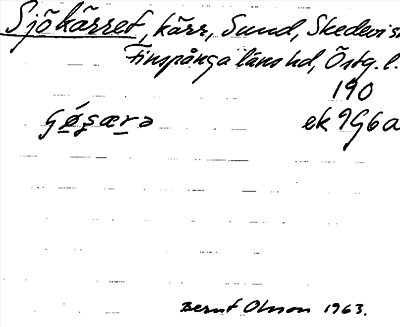 Sjökärret, kärr, Sund, Skedevi s
Finspånga läns hd, Östg. l.
190
ek 9G6a
Bernt Olsson 1963.